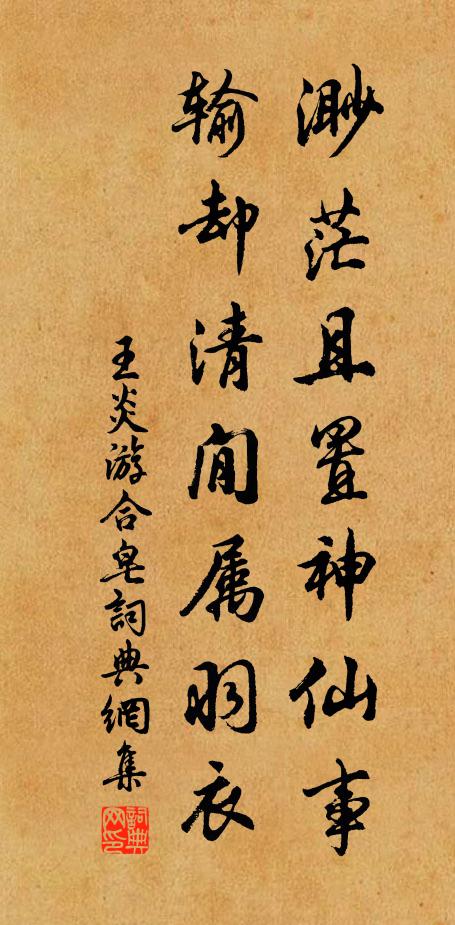 渺茫且置神仙事
输却清闲属羽衣
王炎游合皂詞典網集
詞典
网印